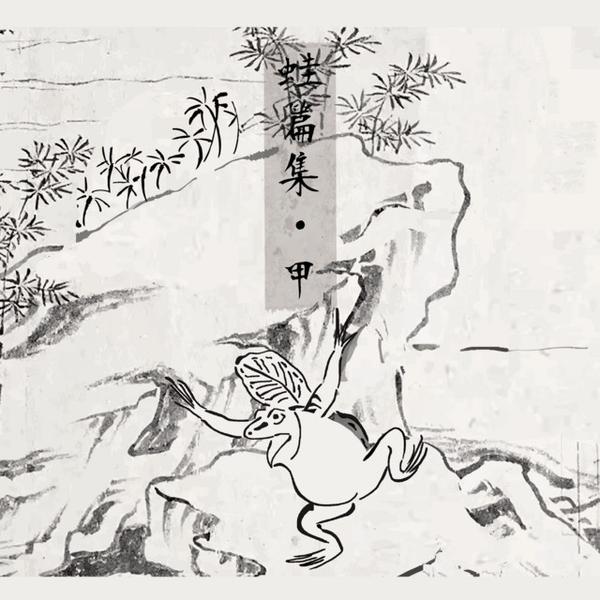 蛙篇集・甲